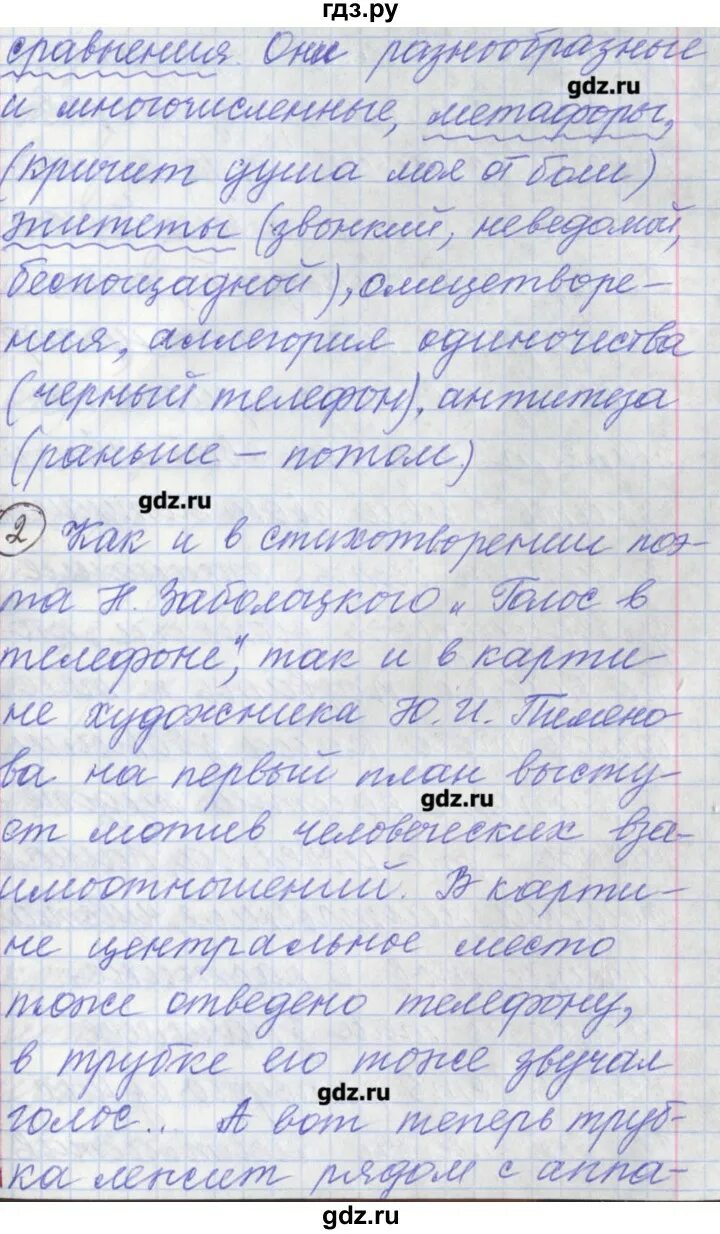 гдз.ру
сравнения. Они разнообразные
gdz.ru
и многочисленные, метафоры,
(кричит душа моя от боли)
эпитеты (звонкий, неведомой,
беспощадной), олицетворе-
ния, аллегория одиночества
(черный телефон), антитеза
(раньше – потом)
gdz.ru
2 Как и в стихотворении поэ-
та Н. Заболоцкого „Голос в
телефоне", так и в карти-
не художника Ю. И. Пимено-
ва на первый план высту-
gdz.ru
ет мотив человеческих вза-
имоотношений. В карти-
не центральное место
тоже отведено телефону,
в трубке его тоже звучал
gdz.ru
голос.. А вот теперь труб-
ка лежит рядом с аппа-
gdz.ru